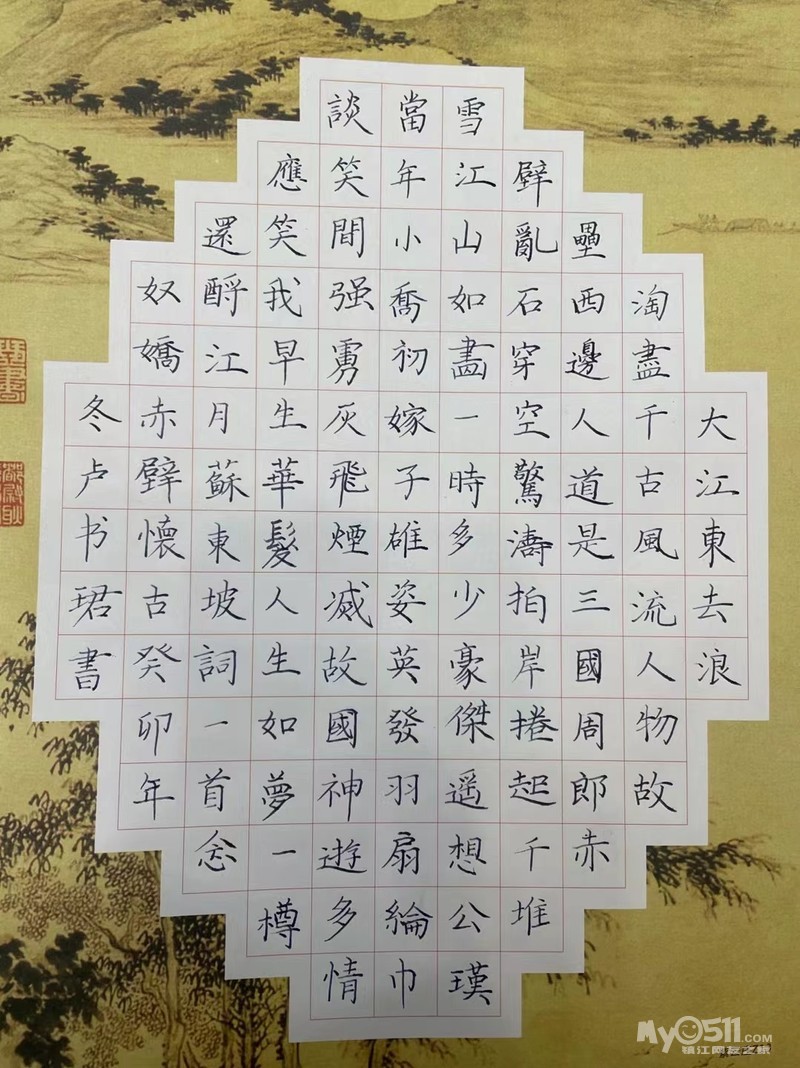 大江東去浪
淘盡千古風流人物故
壘西邊人道是三國周郎赤
壁亂石穿空驚濤拍岸捲起千堆
雪江山如畵一時多少豪傑遥想公瑾
當年小喬初嫁子雄姿英發羽扇綸巾
談笑間强虜灰飛煙滅故國神遊多情
應笑我早生華髮人生如夢一樽
還酹江月蘇東坡詞一首念
奴嬌赤壁懷古癸卯年
冬卢书珺書
My0511.COM
镇江网友之家